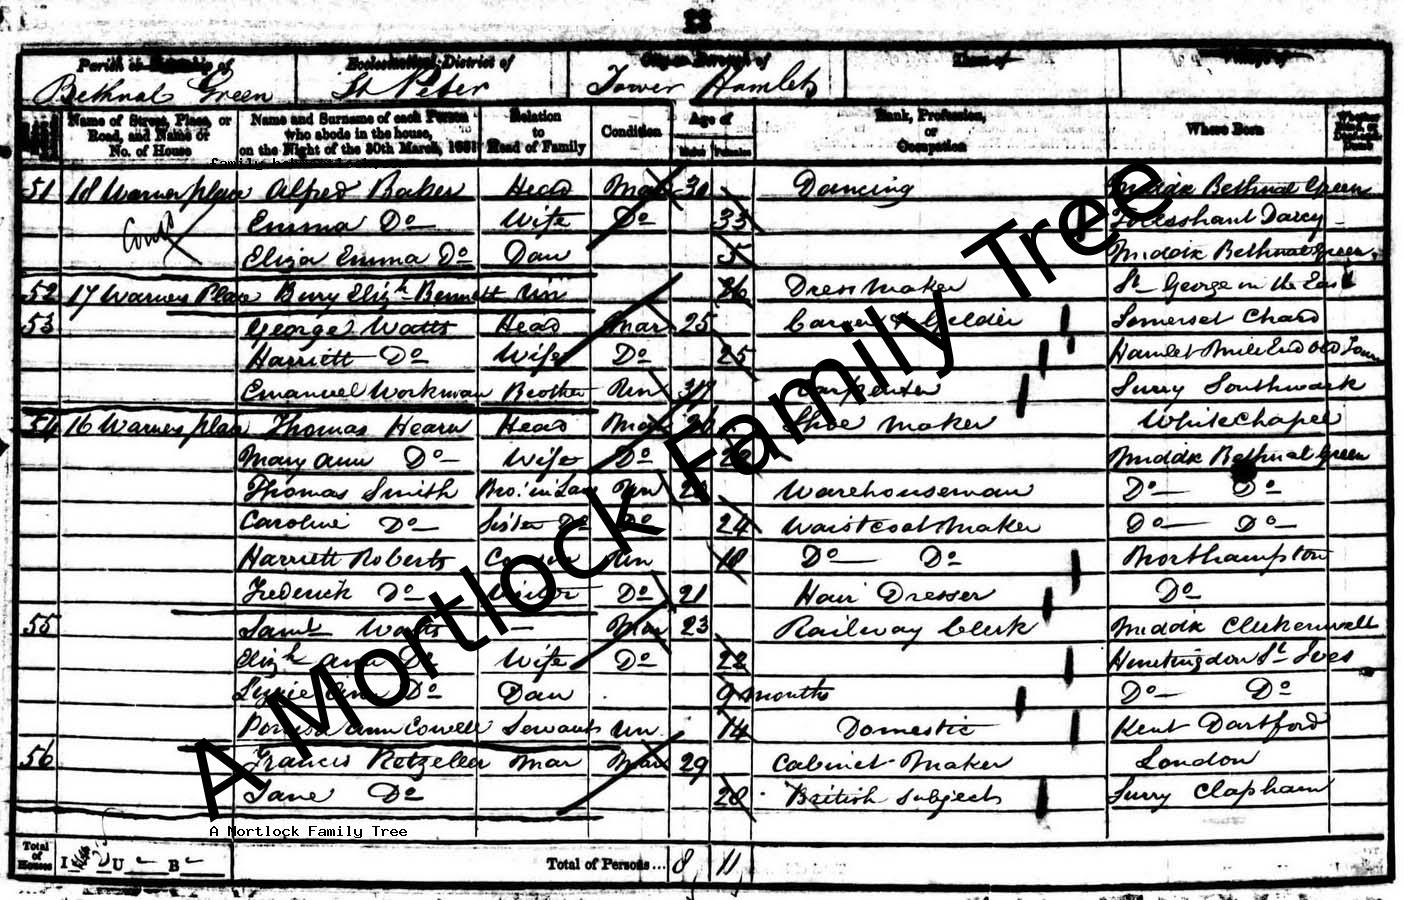 23
Parish or Township of Ecclesiastical District of City or Borough of Town of Village of
Bethnal Green St Peter Tower Hamlets
Name of Street, Place, or Road, and Name or No. of House
Name and Surname of each Person who abode in the house, on the Night of the 30th March, 1851
Relation to Head of Family
Condition
Age of
Males Females
Rank, Profession, or Occupation
Where Born
Whether Blind, or Deaf-and-Dumb
51 18 Warner place Alfred Baker Head Mar 30 Dancing Middx Bethnal Green
Emma Do Wife Do 33 Tolleshunt Darcy
Eliza Emma Do Dau 5 Middx Bethnal Green
52 17 Warner Place Eliz.h Bennett Un 36 Dress maker St George in the East
53 George Watts Head Mar 25 Carver & Gelder Somerset Chard
Harriett Do Wife Do 25 Hamlet Mile End Old Town
Emanuel Workman Brother Un Carpenter Surry Southwark
54 16 Warner place Thomas Hearn Head Mar Shoe maker White Chapel
Mary ann Do Wife Do Middx Bethnal Green
Thomas Smith Bro.' in Law Un Warehouseman Do Do
Caroline Do Sister Do Do 24 Waistcoat Maker Do Do
Harriett Roberts Un 18 Do Do Northampton
Frederick Do Do 21 Hair Dresser Do
55 Saml Watts Mar 23 Railway Clerk Middx Clerkenwell
Eliz.h ann Do Wife Do 22 Huntingdon St Ives
Do Dau 9 months Do Do
ann Cowell Servant Un 14 Domestic Kent Dartford
56 Francis Retzeller Mar Mar 29 Cabinet Maker London
Jane Do 28 British Subjects Surry Clapham
A Mortlock Family Tree
A Mortlock Family Tree
Total of Houses I U B Total of Persons... 8 11